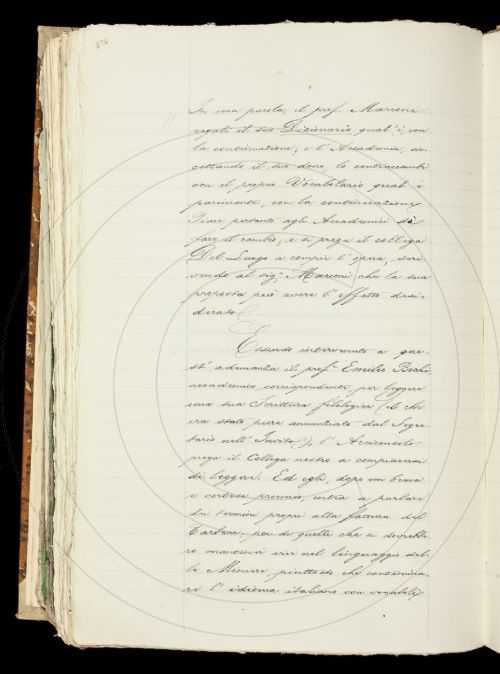 In una parola, il prof. Marconi
regali il suo Dizionario qual'è, con
la continuazione; e l'Accademia, ac-
cettando il suo dono lo contraccambi
con il proprio Vocabolario qual è
parimente, con la continuazione.
Piace pertanto agli Accademici di
fare il cambio; e si prega il collega
Del Lungo a compir l'opera, scri-
vendo al sig.r Marconi che la sua
proposta può avere l'effetto desi-
derato.
Essendo intervenuto a que-
st'adunanza il prof.r Emilio Bechi
accademico corrispondente per leggere
una sua Scrittura filologica (il che
era stato pure annunziato dal Segre-
tario nell'Invito), l'Arciconsolo
prega il Collega nostro a compiacersi
di leggere. Ed egli, dopo un breve
e cortese proemio, entra a parlare
dei termini propri alla fattura del
Carbone, poi di quelli che si dovrebbe-
ro mantener vivi nel linguaggio del-
le Miniere, piuttosto che contamina-
re l'idioma italiano con vocaboli